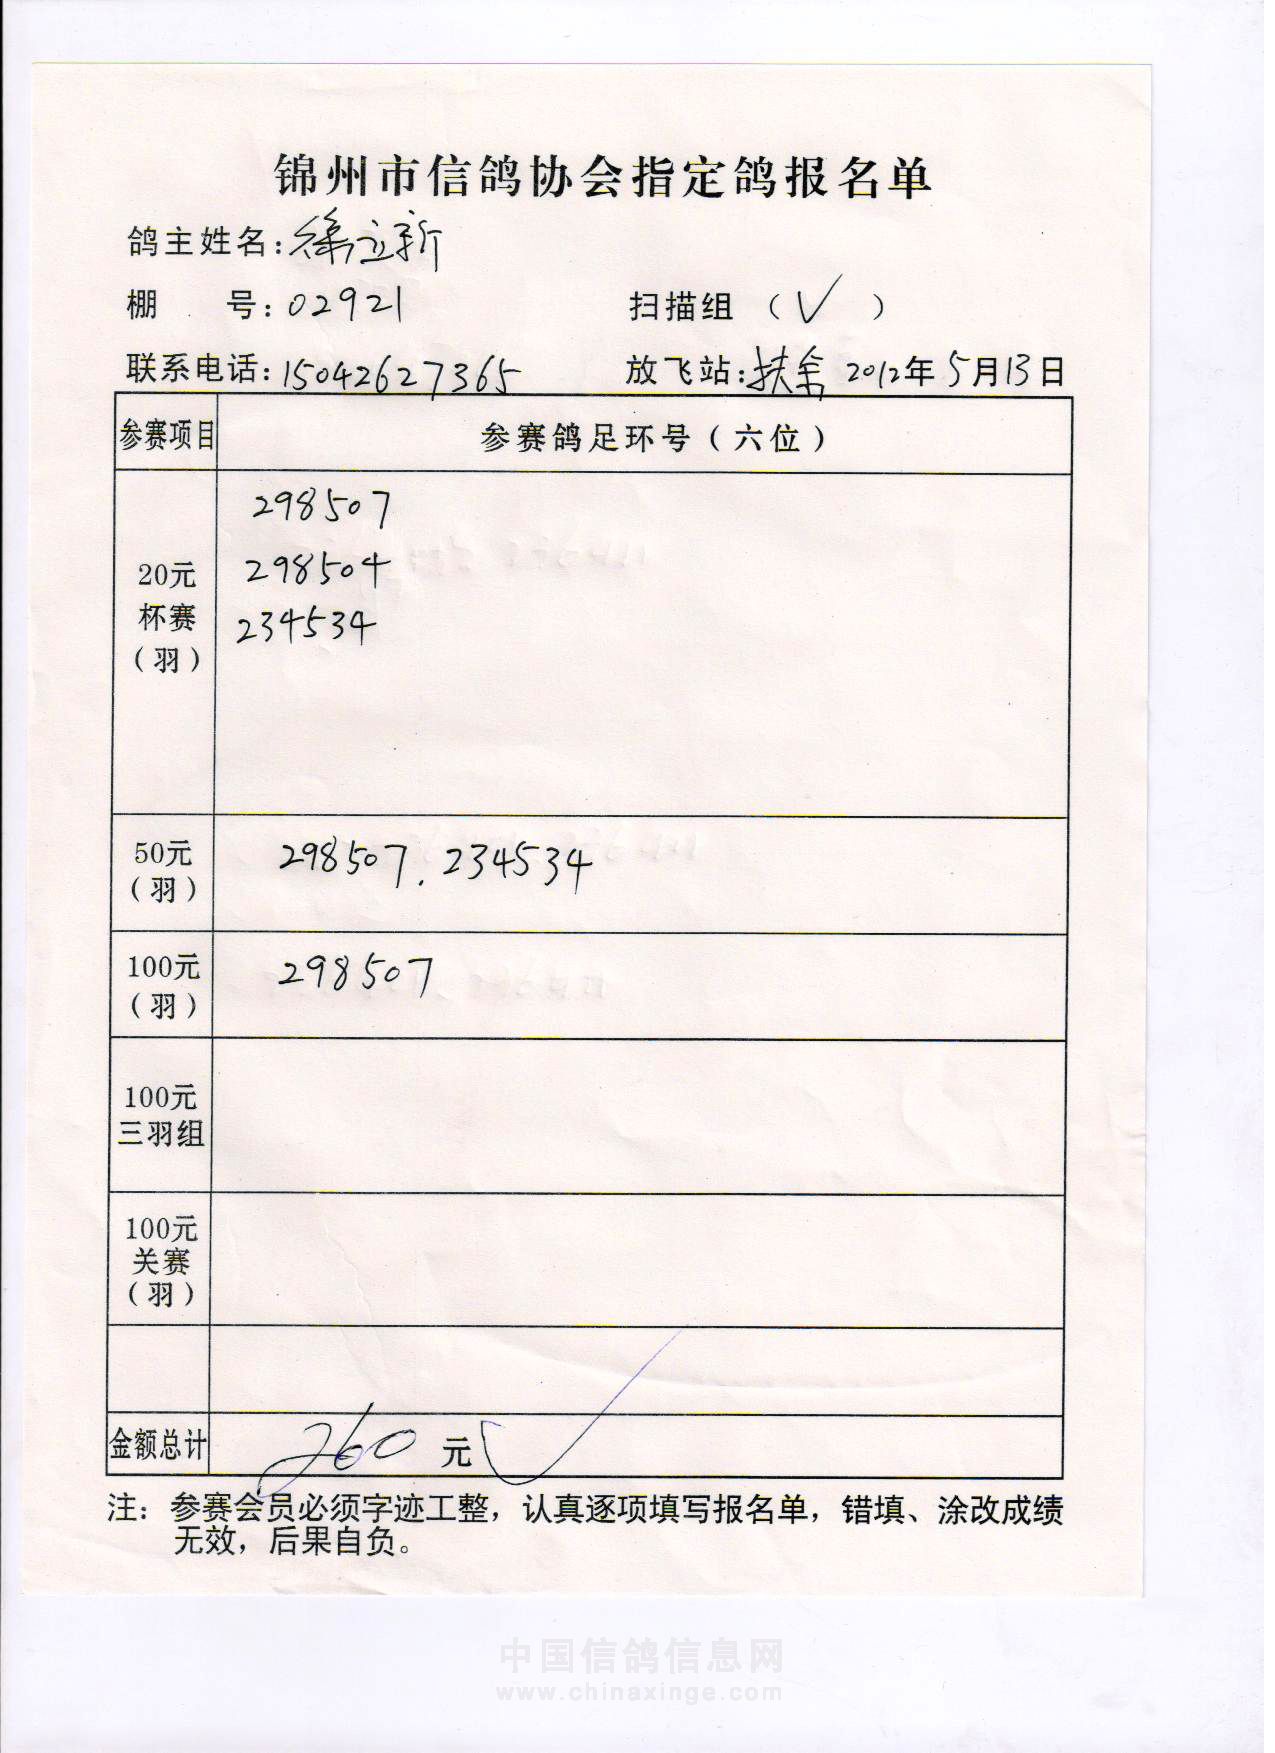 锦州市信鸽协会指定鸽报名单
鸽主姓名:徐立新
棚 号:02921 扫描组 (√)
联系电话:15042627365 放飞站:扶余 2012年5月13日
参赛项目 参赛鸽足环号(六位)
298507
298504
234534
20元
杯赛
(羽)
50元
(羽)
298507.234534
100元
(羽)
298507
100元
三羽组
100元
关赛
(羽)
金额总计 260元√
注:参赛会员必须字迹工整,认真逐项填写报名单,错填、涂改成绩
无效,后果自负。
中国信鸽信息网
www.chinaxinge.com